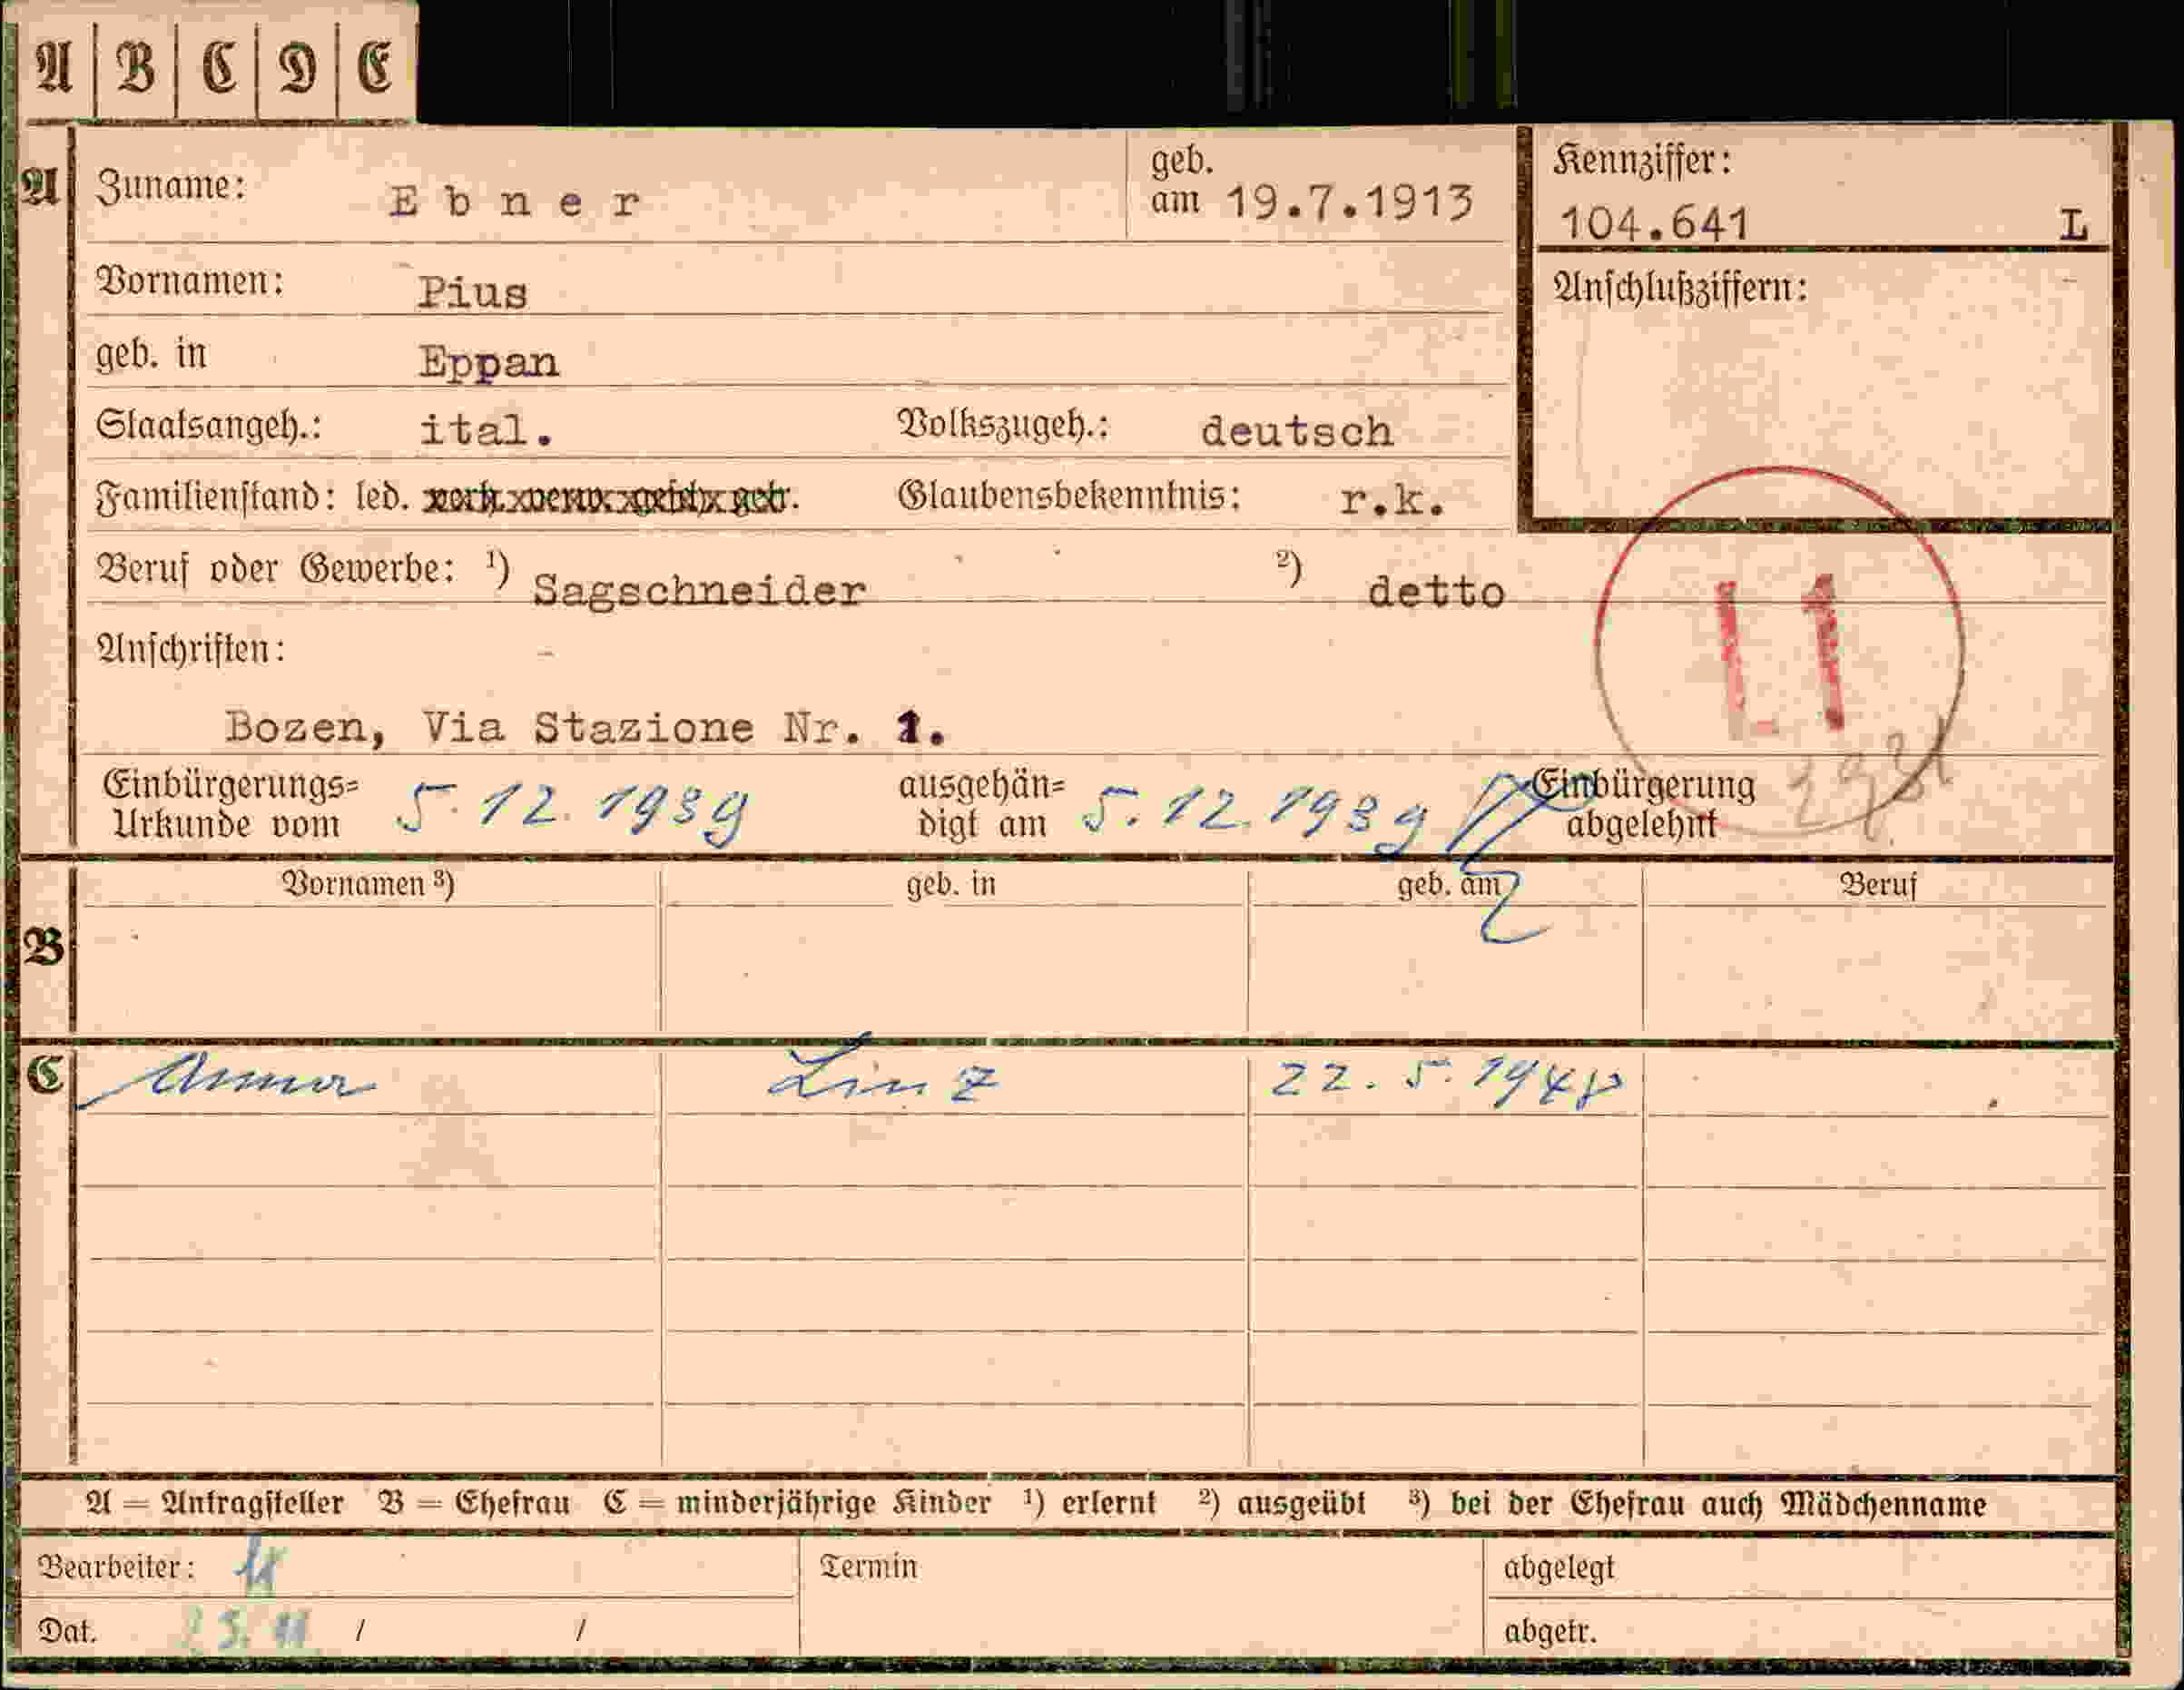 A | B | C | D | E
A
Zuname: Ebner
geb. am 19.7.1913
Kennziffer:
104.641 L
Vornamen: Pius
Anschlußziffern: -
geb. in Eppan
Staatsangeh.: ital. Volkszugeh.: deutsch
Familienstand: led. verh. verw. gesch. getr. Glaubensbekenntnis: r.k.
Beruf oder Gewerbe: ¹) Sagschneider ²) detto
Anschriften: -
Bozen, Via Stazione Nr. 1.
Einbürgerungs=
Urkunde vom 5.12.1939
ausgehän=
digt am 5.12.1939
Einbürgerung
abgelehnt
B
Vornamen ³) geb. in geb. am Beruf
C
Anna Linz 22.5.194
A = Antragsteller B = Ehefrau C = minderjährige Kinder ¹) erlernt ²) ausgeübt ³) bei der Ehefrau auch Mädchenname
Bearbeiter: Termin abgelegt
Dat. / / abgetr.